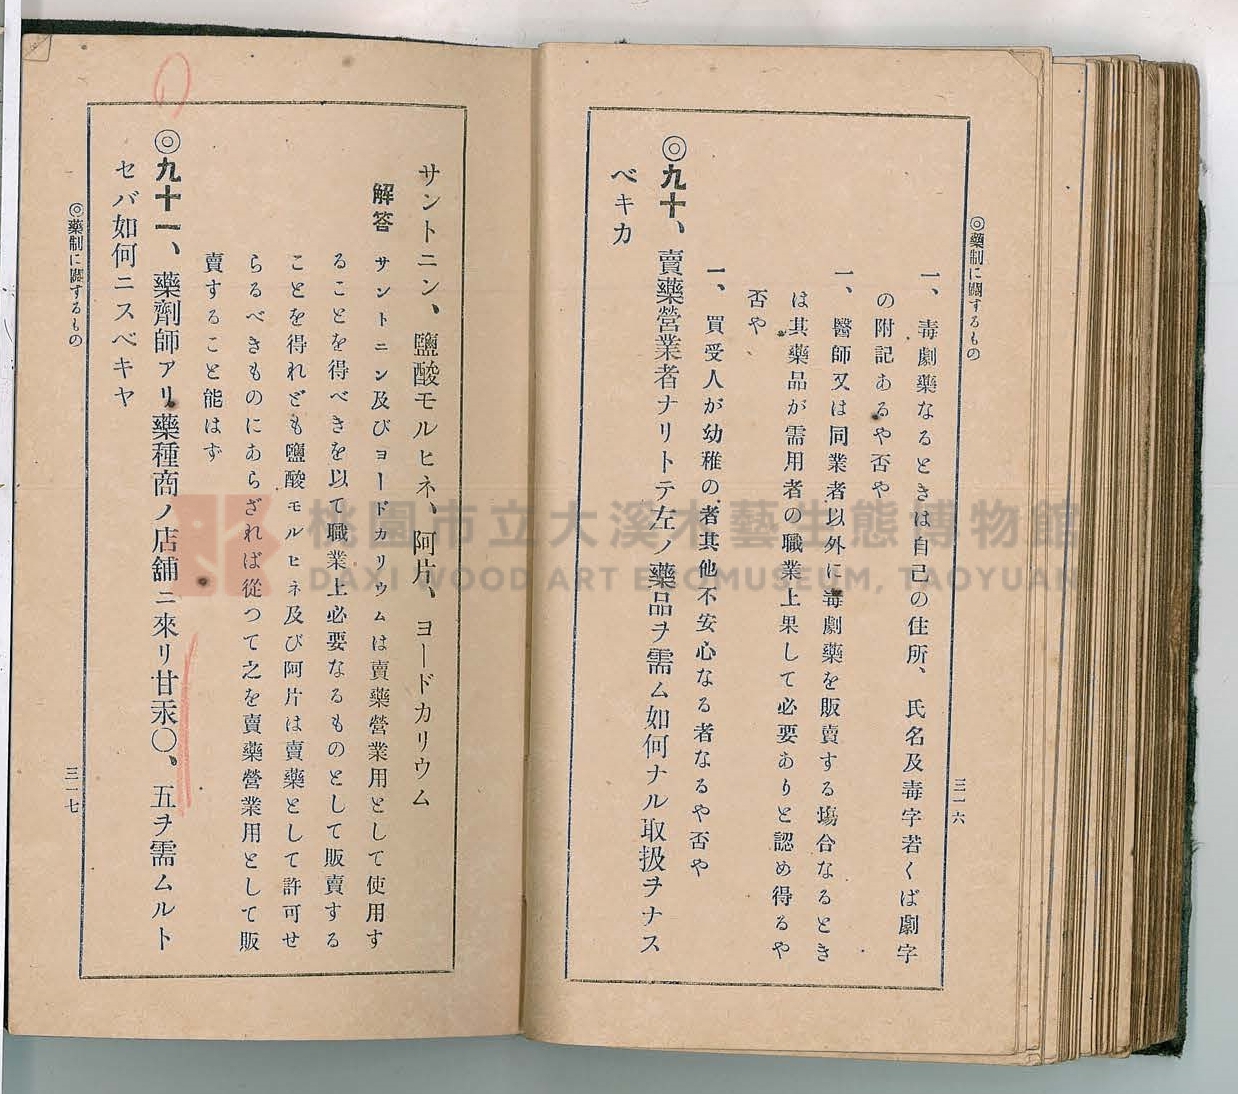 ◎藥制に關するもの
一、毒劇藥なるときは自己の住所、氏名及毒字若くば劇字
の附記あるや否や
一、醫師又は同業者以外に毒劇藥を販賣する塲合なるとき
は其藥品が需用者の職業上果して必要ありと認め得るや
否や
一、買受人が幼稚の者其他不安心なる者なるや否や
◎九十、賣藥營業者ナリトテ左ノ藥品ヲ需ム如何ナル取扱ヲナス
ベキカ
三一六
サントニン、鹽酸モルヒネ、阿片、ヨードカリウム
解答 サントニン及びヨードカリウムは賣藥營業用として使用す
ることを得べきを以て職業上必要なるものとして販賣する
ことを得れども鹽酸モルヒネ及び阿片は賣藥として許可せ
らるべきものにあらざれば從つて之を賣藥營業用として販
賣すること能はず
◎九十一、藥劑師アリ藥種商ノ店舖ニ來リ甘汞〇、五ヲ需ムルト
セバ如何ニスベキヤ
◎藥制に關するもの
三一七
桃園市立大溪木藝生態博物館
DAXI WOOD ART ECOMUSEUM, TAOYUAN